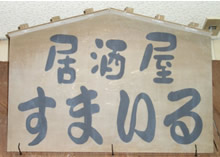 居酒屋
すまいる